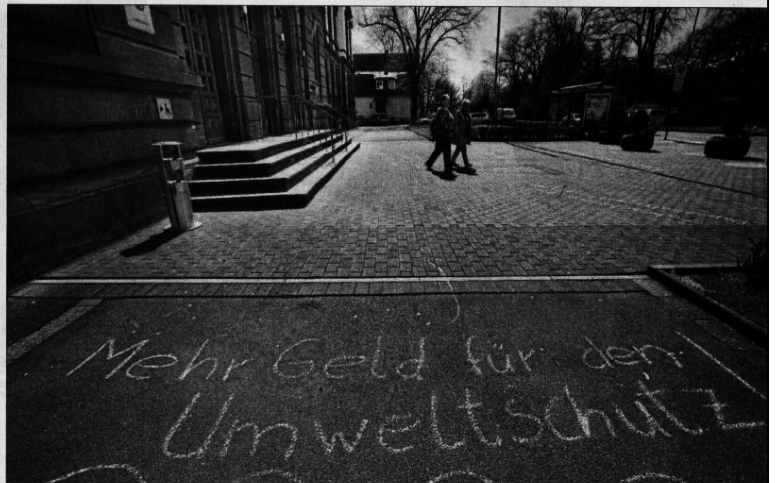 Mehr Geld für den
Umweltschutz